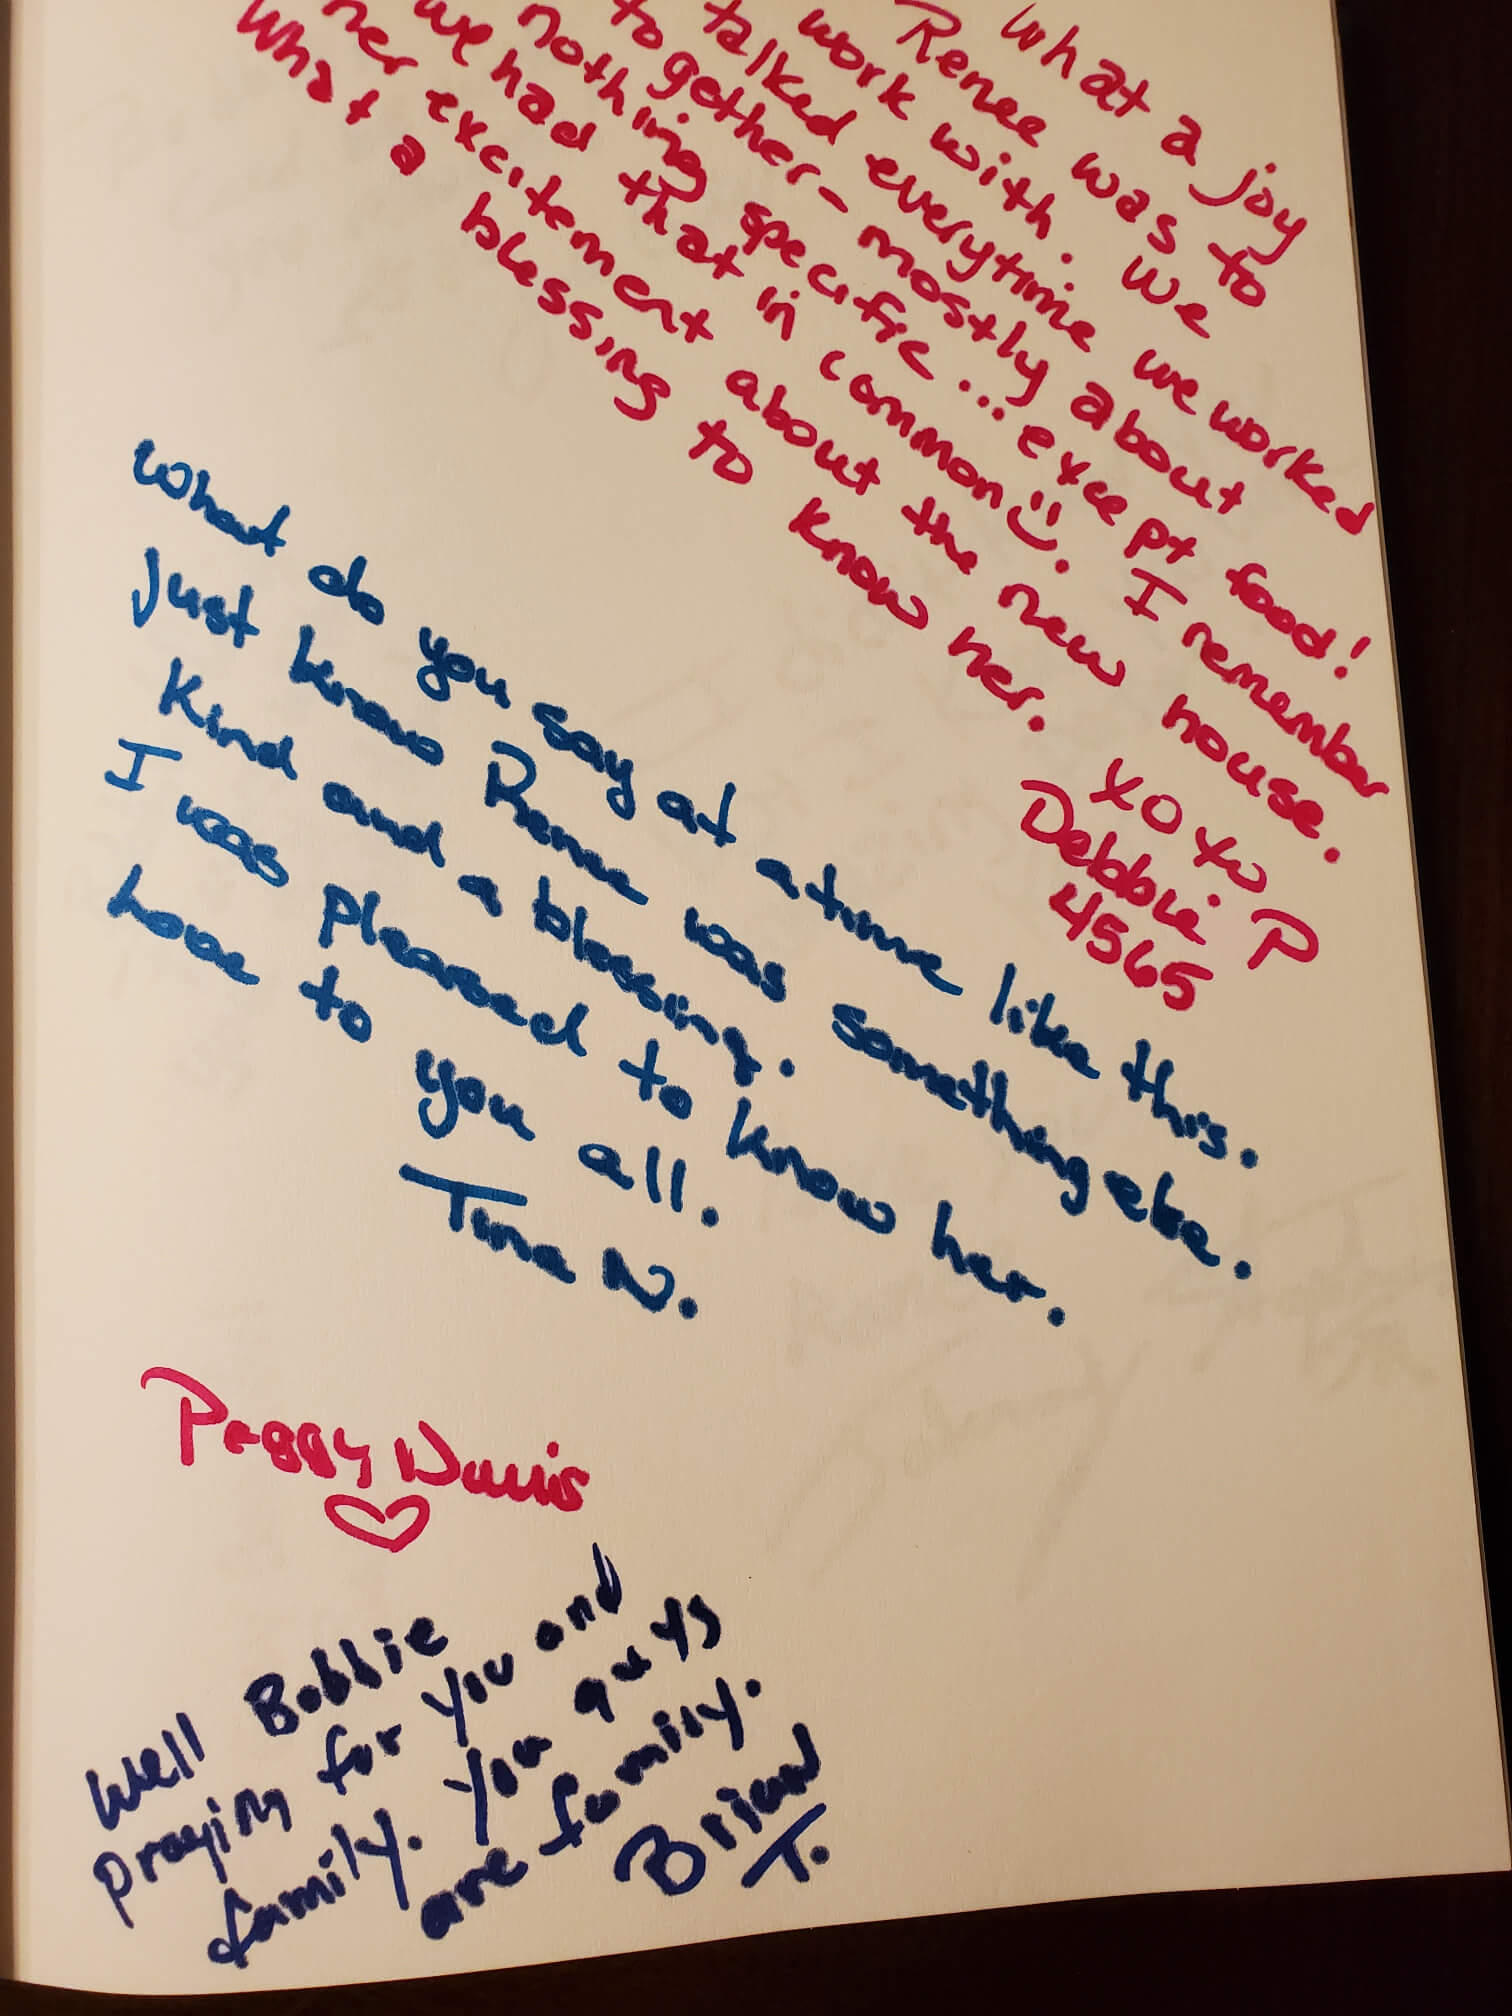 What a joy
Renee was to
work with. We
talked everytime we worked
together - mostly about
nothing specific... except food!
we had that in common☺. I remember
her excitement about the new house.
What a blessing to know her.
XOXO
Debbie P
4565
What do you say at a time like this.
Just know Renee was something else.
Kind and a blessing.
I was pleased to know her.
love to you all.
Tina N.
Peggy Davis
♡
Well Bobbie
praying for you and
family. You guys
are family.
Brian
T.